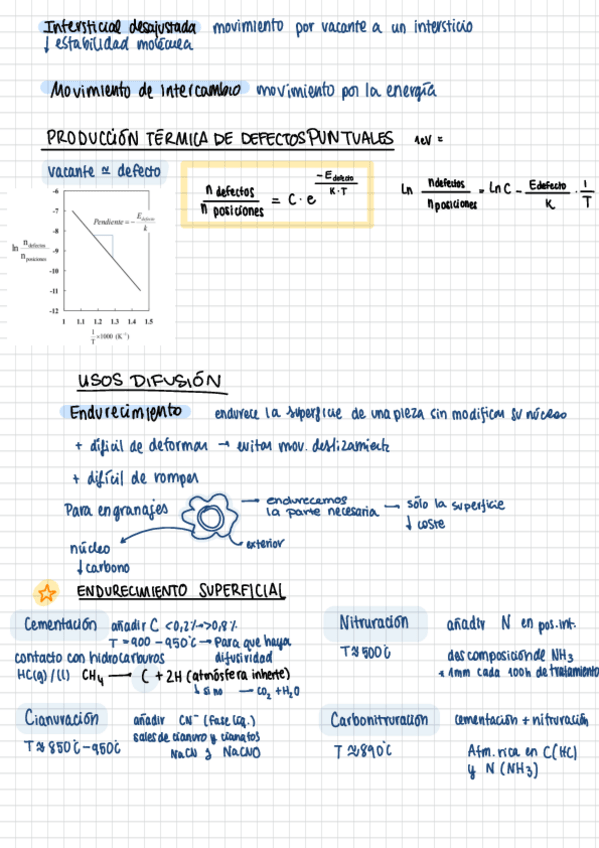 Intersticial desajustada movimiento por vacante a un intersticio
↓ estabilidad molécula
Movimiento de intercambio movimiento por la energía
PRODUCCIÓN TÉRMICA DE DEFECTOS PUNTUALES 1eV =
vacante ≃ defecto
n defectos / n posiciones = C · e^(-E defecto / K·T)
ln n defectos / n posiciones = ln C - E defecto / K · 1 / T
-6
-7
-8
-9
-10
-11
-12
Pendiente = - E defecto / k
ln n defectos / n posiciones
1 1.1 1.2 1.3 1.4 1.5
1/T ×1000 (K⁻¹)
USOS DIFUSIÓN
Endurecimiento endurece la superficie de una pieza sin modificar su núcleo
+ difícil de deformar → evitar mov. deslizamiento
+ difícil de romper
Para engranajes → endurecemos la parte necesaria → sólo la superficie
↓ coste
exterior
núcleo
↓ carbono
ENDURECIMIENTO SUPERFICIAL
Cementación añadir C <0,2%->0,8%
T = 900 - 950°C → Para que haya difusividad
contacto con hidrocarburos
HC(g)/(l) CH₄ → C + 2H (atmósfera inherte)
↓ si no → CO₂ + H₂O
Nitruración añadir N en pos.int.
T ≈ 500°C descomposición de NH₃
* 1mm cada 100h de tratamiento
Cianuración añadir CN⁻ (fase líq.)
T ≈ 850°C - 950°C sales de cianuro y cianatos
NaCN y NaCNO
Carbonitruración cementación + nitruración
T ≈ 890°C Atm. rica en C(HC)
y N (NH₃)